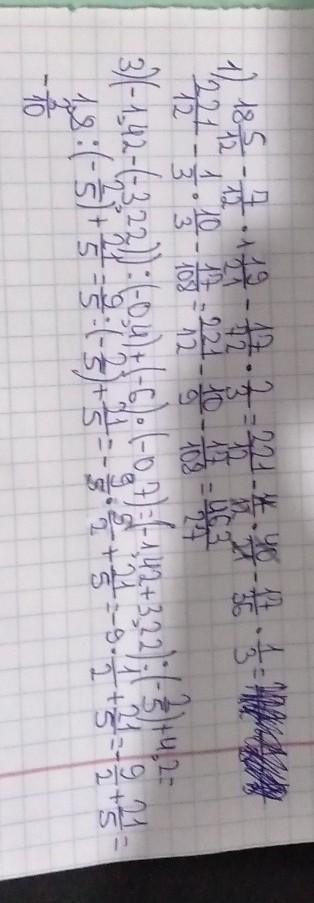 1) 18 5/12 - 7/12 · 1 19/21 - 17/72 · 2/3 = 221/12 - 7/12 · 40/21 - 17/36 · 1/3 =
221/12 - 1/3 · 10/3 - 17/108 = 221/12 - 10/9 - 17/108 = 463/27
3) (-1,42 - (-3,22)) : (-0,4) + (-6) · (-0,7) = (-1,42 + 3,22) : (-2/5) + 4,2 =
1,8 : (-2/5) + 21/5 = 9/5 : (-2/5) + 21/5 = - 9/5 · 5/2 + 21/5 = -9 · 1/2 + 21/5 = - 9/2 + 21/5 =
- 3/10